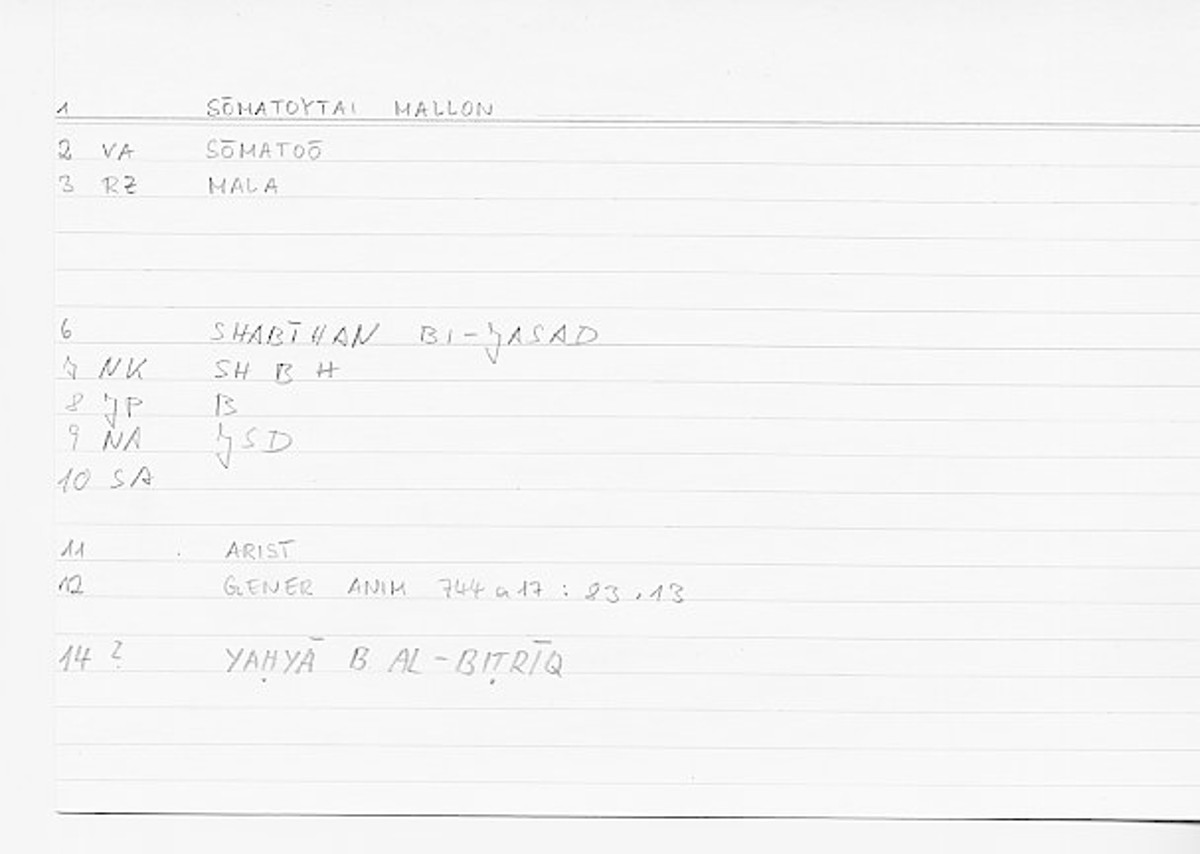 1 SŌMATOYTAI MALLON
2 VA SŌMATOŌ
3 RZ MALA
6 SHABĪHAN BI-JASAD
7 NK SH B H
8 JP B
9 NA JSD
10 SA
11 ARIST
12 GENER ANIM 744a17 : 83,13
14 ? YAḤYĀ B AL-BIṬRĪQ